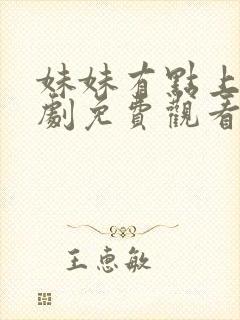 妹妹有點上
劇免費觀看
王惠敏